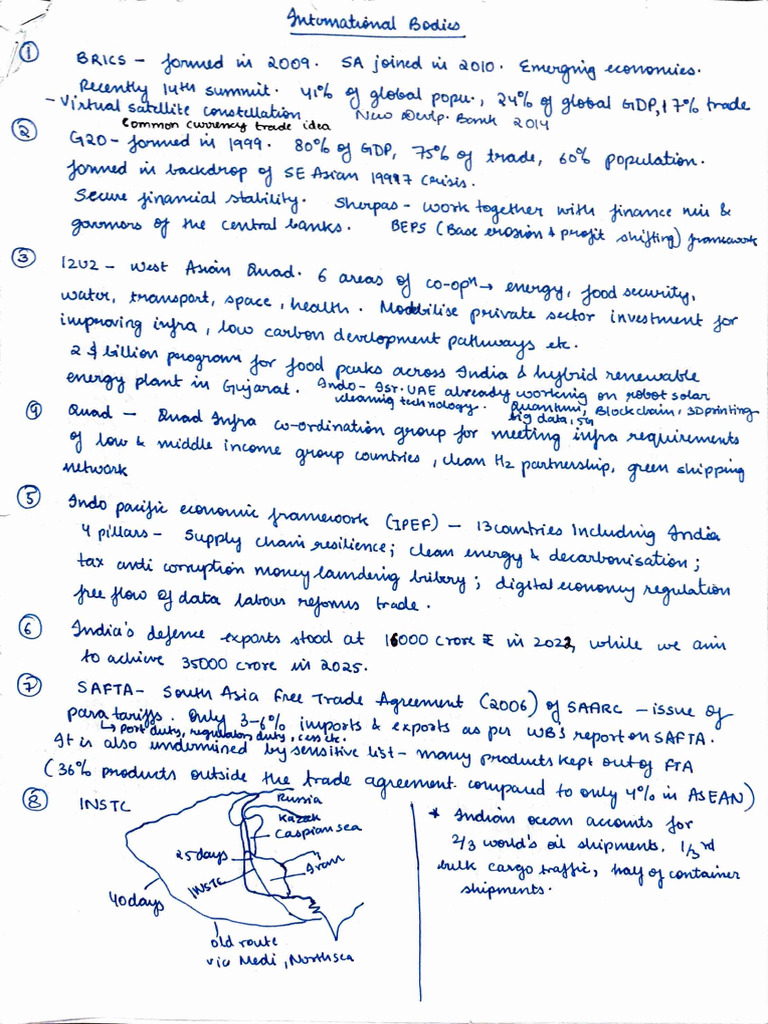 International Bodies
① BRICS - formed in 2009. SA joined in 2010. Emerging economies.
Recently 14th summit. 41% of global popu., 24% of global GDP, 17% trade
- Virtual satellite constellation New Devlp. Bank 2014
Common currency trade idea
② G20 - formed in 1999. 80% of GDP, 75% of trade, 60% population.
formed in backdrop of SE Asian 19997 crisis.
Secure financial stability. Sherpas - work together with finance min &
governors of the central banks. BEPS (Base erosion & profit shifting) framework
③ I2U2 - West Asian Quad. 6 areas of co-opⁿ → energy, food security,
water, transport, space, health. Mobilise private sector investment for
improving infra, low carbon development pathways etc.
2 $ billion program for food parks across India & hybrid renewable
energy plant in Gujarat. Indo-Isr.UAE already working on robot solar
cleaning technology. Quantum, Blockchain, 3D printing
big data, 5G
④ Quad - Quad Infra co-ordination group for meeting infra requirements
of low & middle income group countries, clean H₂ partnership, green shipping
network
⑤ Indo pacific economic framework (IPEF) - 13 countries Including India
4 pillars - Supply chain resilience; clean energy & decarbonisation;
tax anti corruption money laundering bribery; digital economy regulation
free flow of data labour reforms trade.
⑥ India's defence exports stood at 16000 crore ₹ in 2022, while we aim
to achieve 35000 crore in 2025.
⑦ SAFTA - South Asia Free Trade Agreement (2006) of SAARC - issue of
para tariffs. Only 3-6% imports & exports as per WB's report on SAFTA.
↳ port duty, regulatory duty, cess etc.
It is also undermined by sensitive list - many products kept out of FTA
(36% products outside the trade agreement compared to only 4% in ASEAN)
⑧ INSTC
Russia
Kazak
Caspian sea
25 days
Iran
INSTC
40 days
old route
via Medi, North sea
* Indian ocean accounts for
2/3 world's oil shipments, 1/3rd
bulk cargo traffic, half of container
shipments.